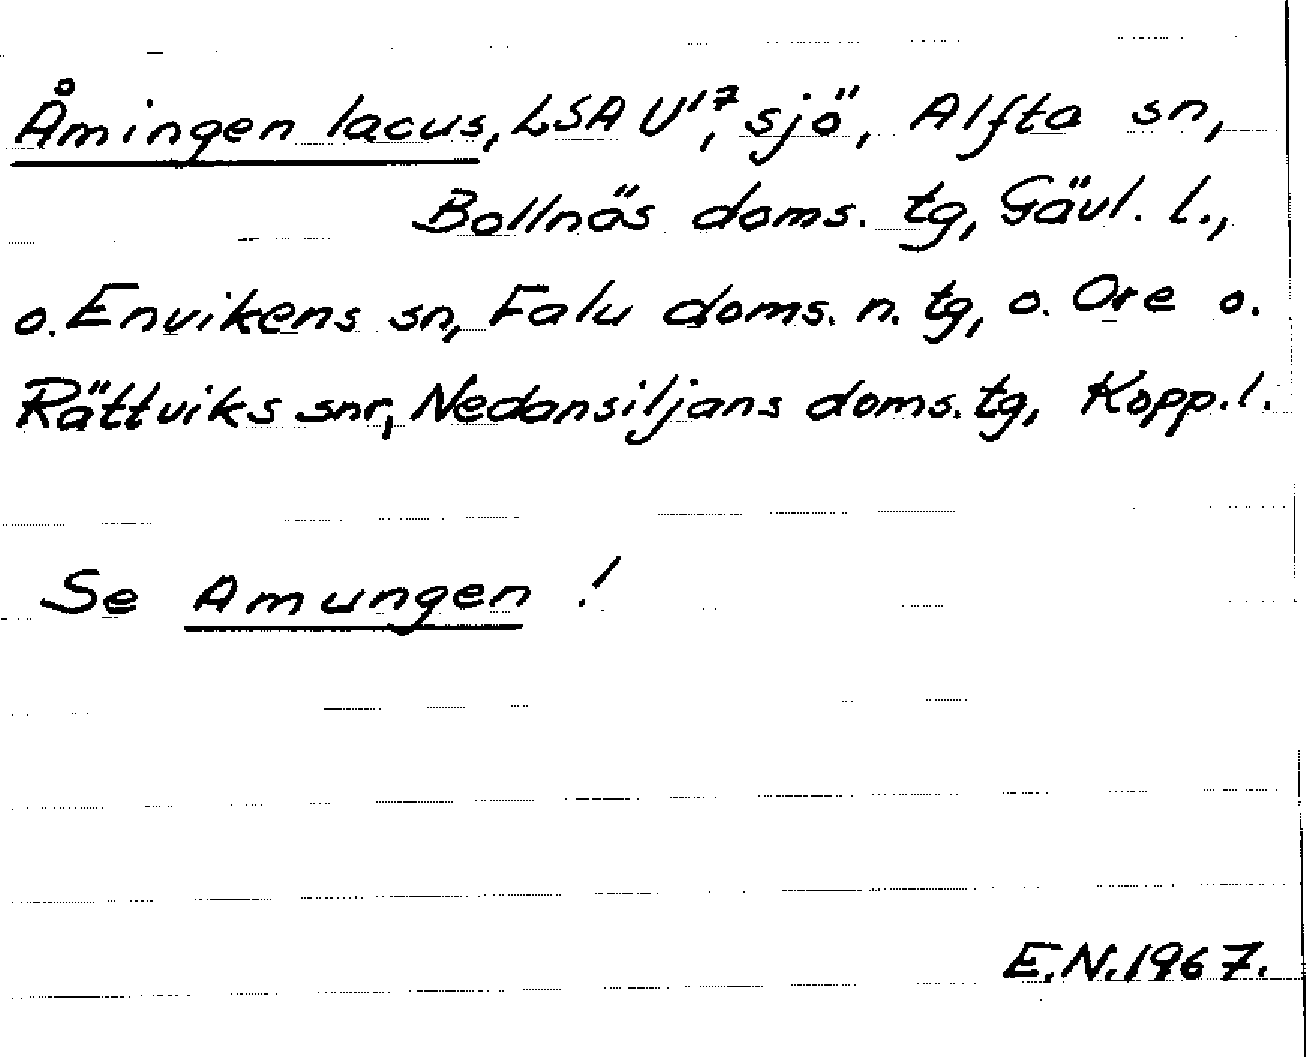 Åmingen lacus, LSA U¹⁷, sjö, Alfta sn,
Bollnäs doms. tg, Gävl. l.,
o. Envikens sn, Falu doms. n. tg, o. Ore o.
Rättviks snr, Nedansiljans doms. tg, Kopp. l.
Se Amungen !
E.N. 1967.